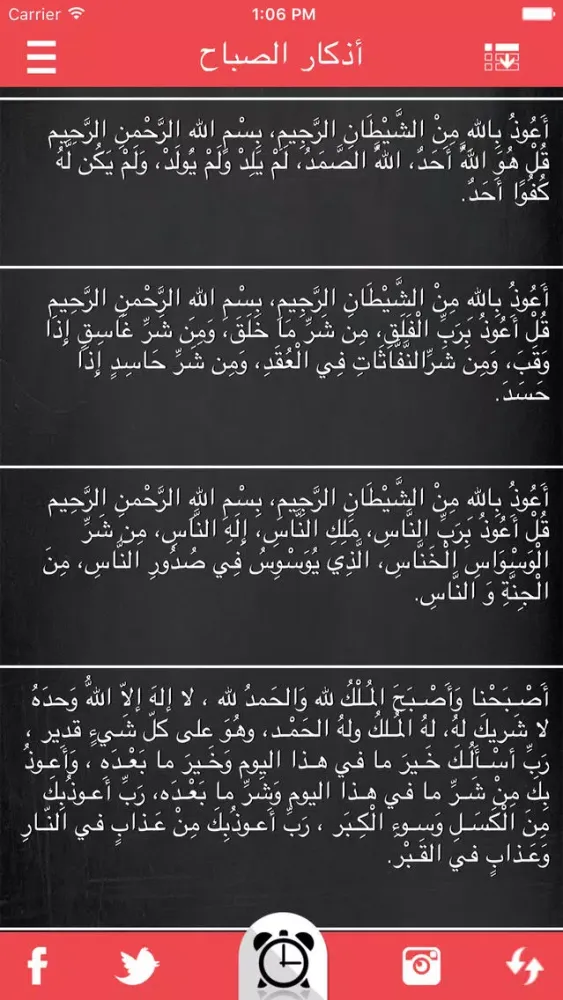 Carrier 1:06 PM
أذكار الصباح
أَعُوذُ بِاللهِ مِنْ الشَّيْطَانِ الرَّجِيمِ، بِسْمِ اللهِ الرَّحْمنِ الرَّحِيمِ
قُلْ هُوَ اللهُ أَحَدٌ، اللهُ الصَّمَدُ، لَمْ يَلِدْ وَلَمْ يُولَدْ، وَلَمْ يَكُن لَّهُ
كُفُوًا أَحَدٌ.
أَعُوذُ بِاللهِ مِنْ الشَّيْطَانِ الرَّجِيمِ، بِسْمِ اللهِ الرَّحْمنِ الرَّحِيمِ
قُلْ أَعُوذُ بِرَبِّ الْفَلَقِ، مِن شَرِّ مَا خَلَقَ، وَمِن شَرِّ غَاسِقٍ إِذَا
وَقَبَ، وَمِن شَرِّالنَّفَّاثَاتِ فِي الْعُقَدِ، وَمِن شَرِّ حَاسِدٍ إِذَا
حَسَدَ.
أَعُوذُ بِاللهِ مِنْ الشَّيْطَانِ الرَّجِيمِ، بِسْمِ اللهِ الرَّحْمنِ الرَّحِيمِ
قُلْ أَعُوذُ بِرَبِّ النَّاسِ، مَلِكِ النَّاسِ، إِلَهِ النَّاسِ، مِن شَرِّ
الْوَسْوَاسِ الْخَنَّاسِ، الَّذِي يُوَسْوِسُ فِي صُدُورِ النَّاسِ، مِنَ
الْجِنَّةِ وَ النَّاسِ.
أَصْبَحْنا وَأَصْبَحَ المُلْكُ لله وَالحَمدُ لله ، لا إلهَ إلاّ اللهُ وَحدَهُ
لا شريكَ لهُ، لهُ المُلكُ ولهُ الحَمْد، وهُوَ على كلّ شَيءٍ قدير ،
رَبِّ أسْألُكَ خَيرَ ما في هذا اليوم وَخَيرَ ما بَعْدَه ، وَأَعوذُ
بِكَ مِنْ شَرِّ ما في هذا اليوم وَشَرِّ ما بَعْدَه، رَبِّ أَعوذُبِكَ
مِنَ الْكَسَلِ وَسوءِ الْكِبَر ، رَبِّ أَعوذُبِكَ مِنْ عَذابٍ في النّارِ
وَعَذابٍ في القَبْر.